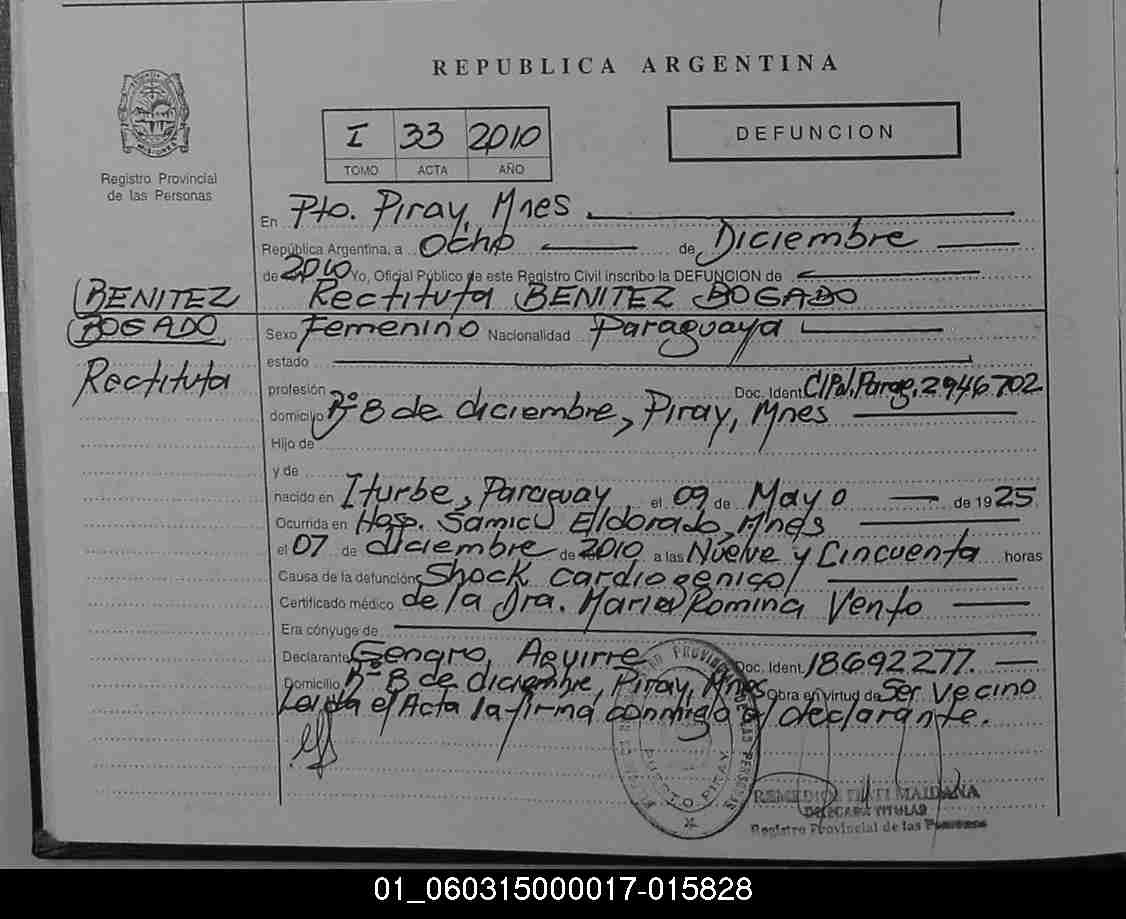 REPUBLICA ARGENTINA
I 33 2010
TOMO ACTA AÑO
DEFUNCION
Registro Provincial
de las Personas
En Pto. Piray, Mnes
República Argentina, a Ocho de Diciembre
de 2010 Yo, Oficial Público de este Registro Civil inscribo la DEFUNCION de
Rectituta BENITEZ BOGADO
BENITEZ
BOGADO
Rectituta
Sexo Femenino Nacionalidad Paraguaya
estado
profesión Doc. Ident. CI Pol. Parag. 2946702
domicilio Bº 8 de diciembre, Piray, Mnes
Hijo de
y de
nacido en Iturbe, Paraguay el 09 de Mayo de 1925
Ocurrida en Hosp. Samic Eldorado, Mnes
el 07 de diciembre de 2010 a las Nueve y Cincuenta horas
Causa de la defunción Shock cardiogénico
Certificado médico de la Dra. Maria Romina Vento
Era cónyuge de
Declarante Genaro, Aguirre Doc. Ident. 18692277.
Domicilio Bº 8 de diciembre, Piray, Mnes Obra en virtud de Ser Vecino
Leida el Acta la firma conmigo el declarante.
PUERTO PIRAY
MAIDANA
DELEGADA TITULAR
Registro Provincial de las Personas
01_060315000017-015828